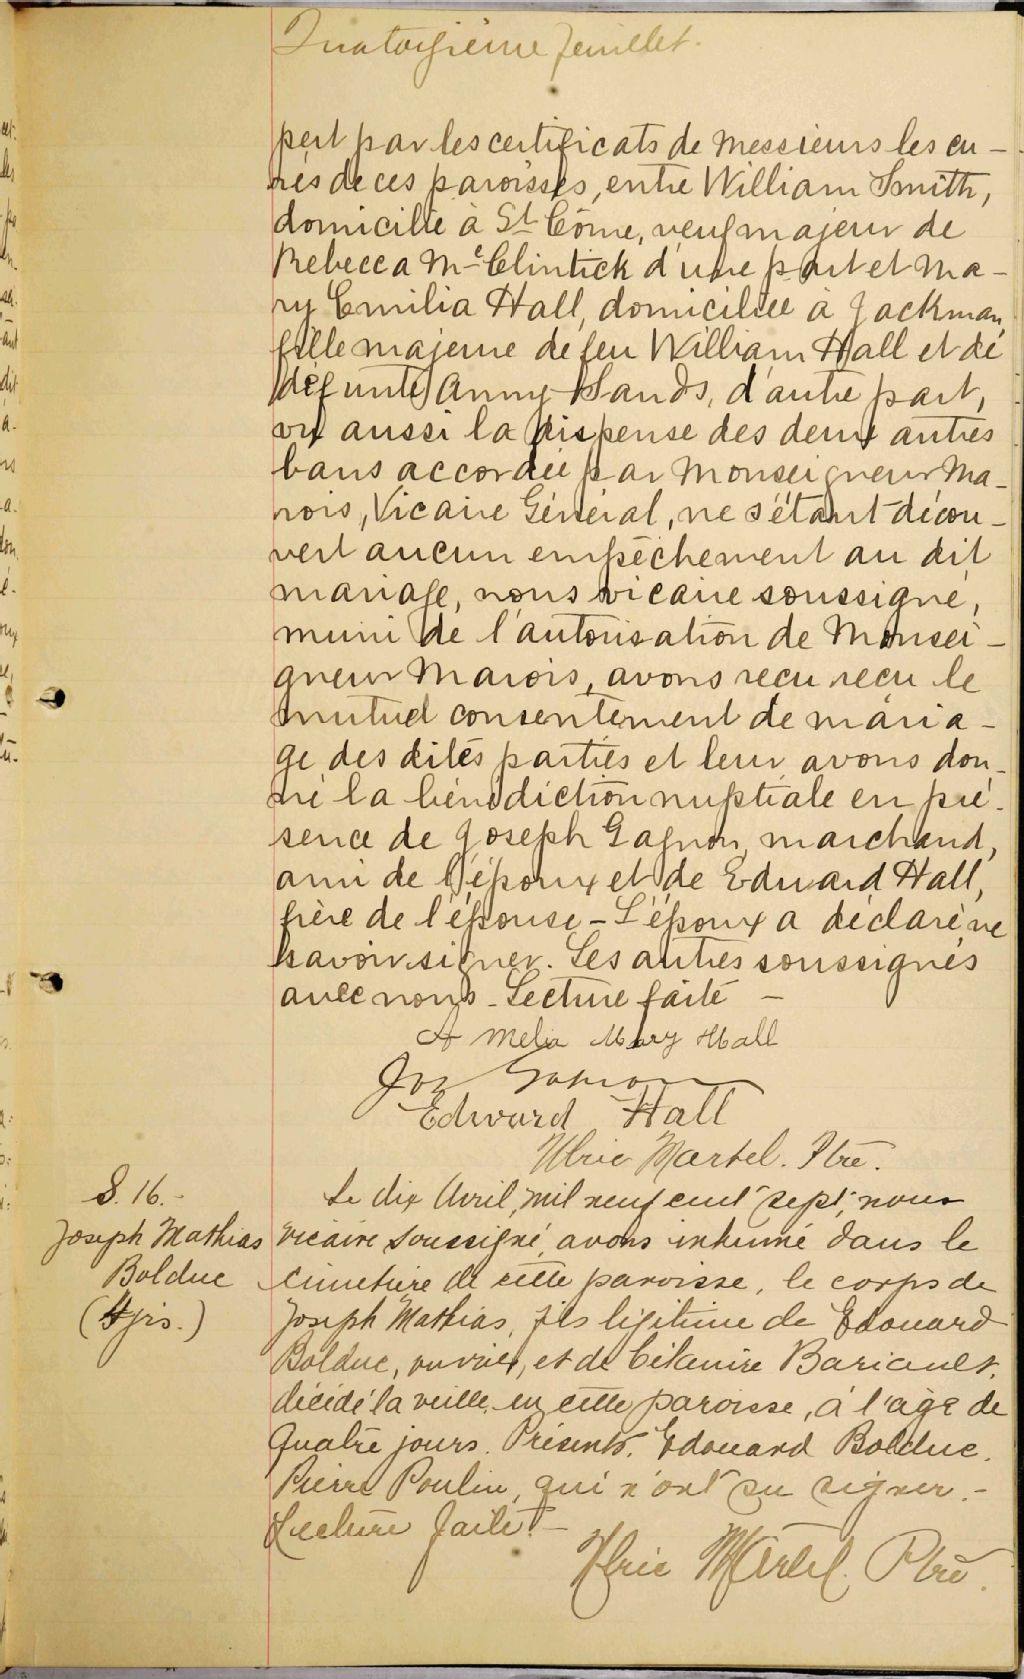 Quatorzième feuillet.
pert par les certificats de Messieurs les cu-
rés de ces paroisses, entre William Smith,
domicilié à St Côme, veuf majeur de
Rebecca Mc Clintick d'une part et Ma-
ry Emilia Hall, domiciliée à Jackman,
fille majeure de feu William Hall et de
défunte Anny Sands, d'autre part,
vu aussi la dispense des deux autres
bans accordée par Monseigneur Ma-
rois, Vicaire Général, ne s'étant décou-
vert aucun empêchement au dit
mariage, nous vicaire soussigné,
muni de l'autorisation de Monsei-
gneur Marois, avons reçu reçu le
mutuel consentement de maria-
ge des dites parties et leur avons don-
né la bénédiction nuptiale en pré-
sence de Joseph Gagnon, marchand,
ami de l'époux et de Edward Hall,
frère de l'épouse - L'époux a déclaré ne
savoir signer. Les autres soussignés
avec nous - Lecture faite -
A melia Mary Hall
Jos Gagnon
Edward Hall
Ulric Martel. Ptre.
S. 16.-
Joseph Mathias
Bolduc
(4 jrs.)
Le dix Avril, mil neuf cent sept, nous
vicaire soussigné, avons inhumé dans le
cimetière de cette paroisse, le corps de
Joseph Mathias, fils légitime de Edouard
Bolduc, ouvrier, et de
décédé la veille en cette paroisse, à l'age de
quatre jours. Présents. Edouard Bolduc.
Pierre Poulin, qui n'ont su signer.-
Lecture faite.-
Ulric Martel. Ptre.